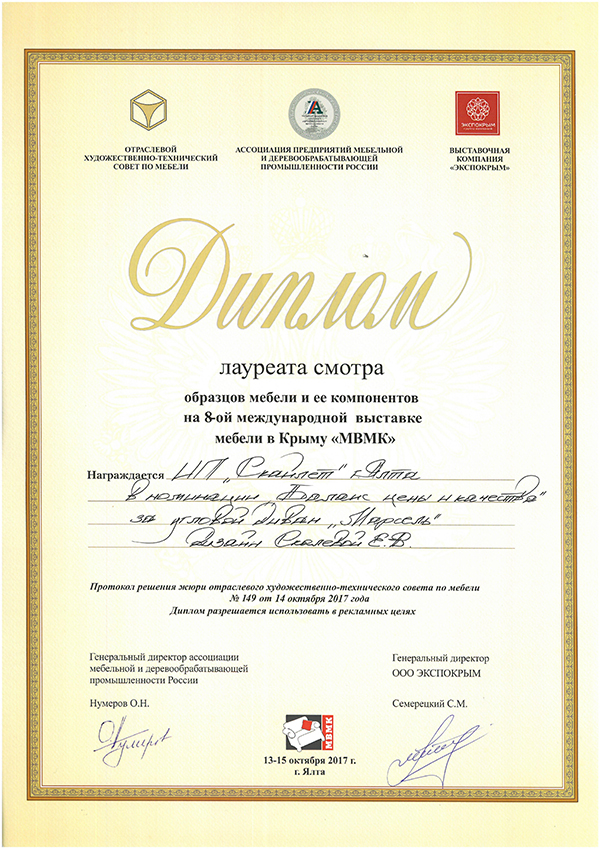 ОТРАСЛЕВОЙ
ХУДОЖЕСТВЕННО-ТЕХНИЧЕСКИЙ
СОВЕТ ПО МЕБЕЛИ
АССОЦИАЦИЯ ПРЕДПРИЯТИЙ МЕБЕЛЬНОЙ
И ДЕРЕВООБРАБАТЫВАЮЩЕЙ
ПРОМЫШЛЕННОСТИ РОССИИ
ЭКСПОКРЫМ
ВЫСТАВОЧНАЯ
КОМПАНИЯ
«ЭКСПОКРЫМ»
Диплом
лауреата смотра
образцов мебели и ее компонентов
на 8-ой международной выставке
мебели в Крыму «МВМК»
Награждается ЧП „Скайлет" г. Ялта
в номинации „Баланс цены и качества"
за угловой диван „Марсель"
Дизайн Е.В.
Протокол решения жюри отраслевого художественно-технического совета по мебели
№ 149 от 14 октября 2017 года
Диплом разрешается использовать в рекламных целях
Генеральный директор ассоциации
мебельной и деревообрабатывающей
промышленности России
Нумеров О.Н.
Генеральный директор
ООО ЭКСПОКРЫМ
Семерецкий С.М.
МВМК
13-15 октября 2017 г.
г. Ялта